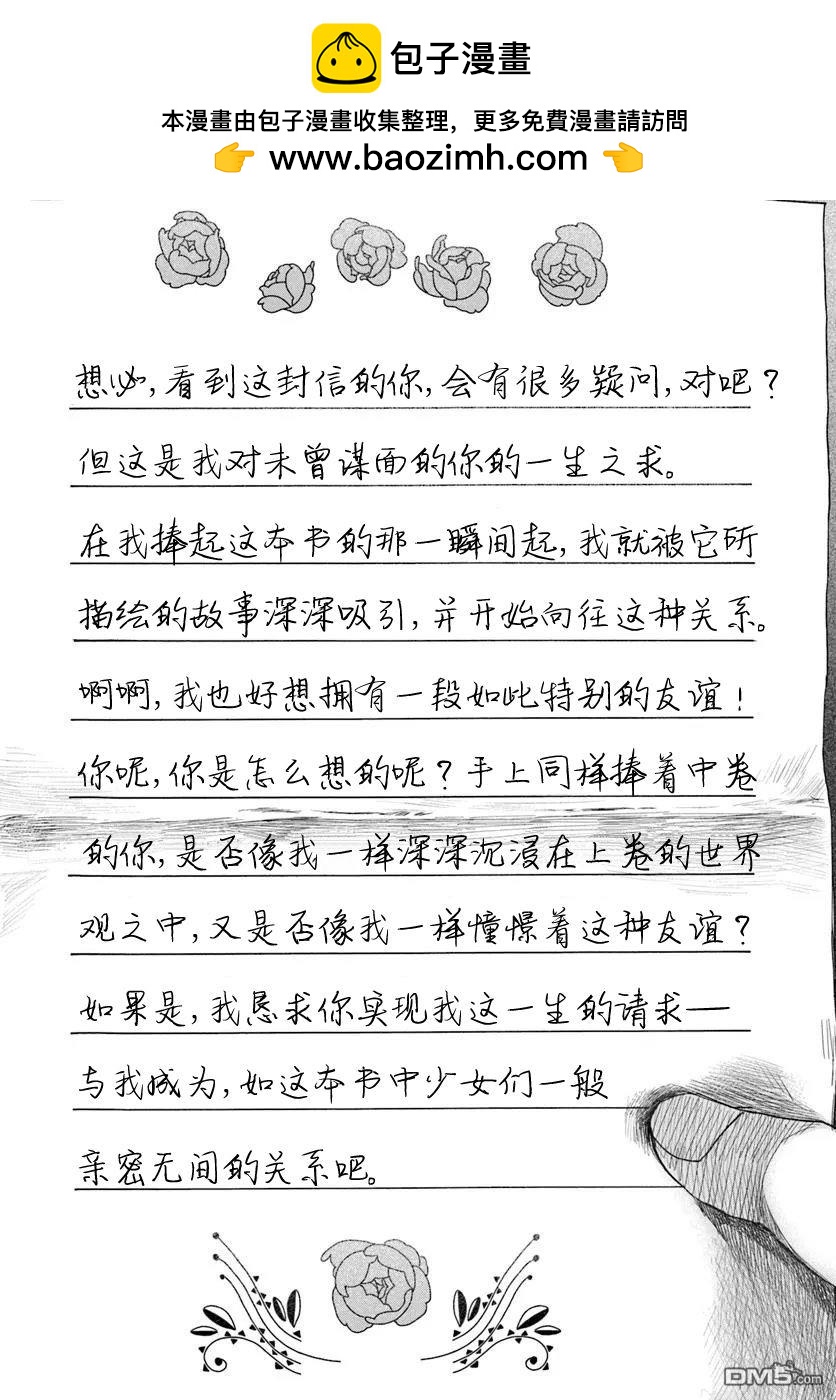 包子漫畫
本漫畫由包子漫畫收集整理，更多免費漫畫請訪問
👉 www.baozimh.com 👈
想必,看到这封信的你,会有很多疑问,对吧?
但这是我对未曾谋面的你的一生之求。
在我捧起这本书的那一瞬间起,我就被它所
描绘的故事深深吸引,并开始向往这种关系。
啊啊,我也好想拥有一段如此特别的友谊!
你呢,你是怎么想的呢?手上同样捧着中卷
的你,是否像我一样深深沉浸在上卷的世界
观之中,又是否像我一样憧憬着这种友谊?
如果是,我恳求你实现我这一生的请求——
与我成为,如这本书中少女们一般
亲密无间的关系吧。
DM5.com